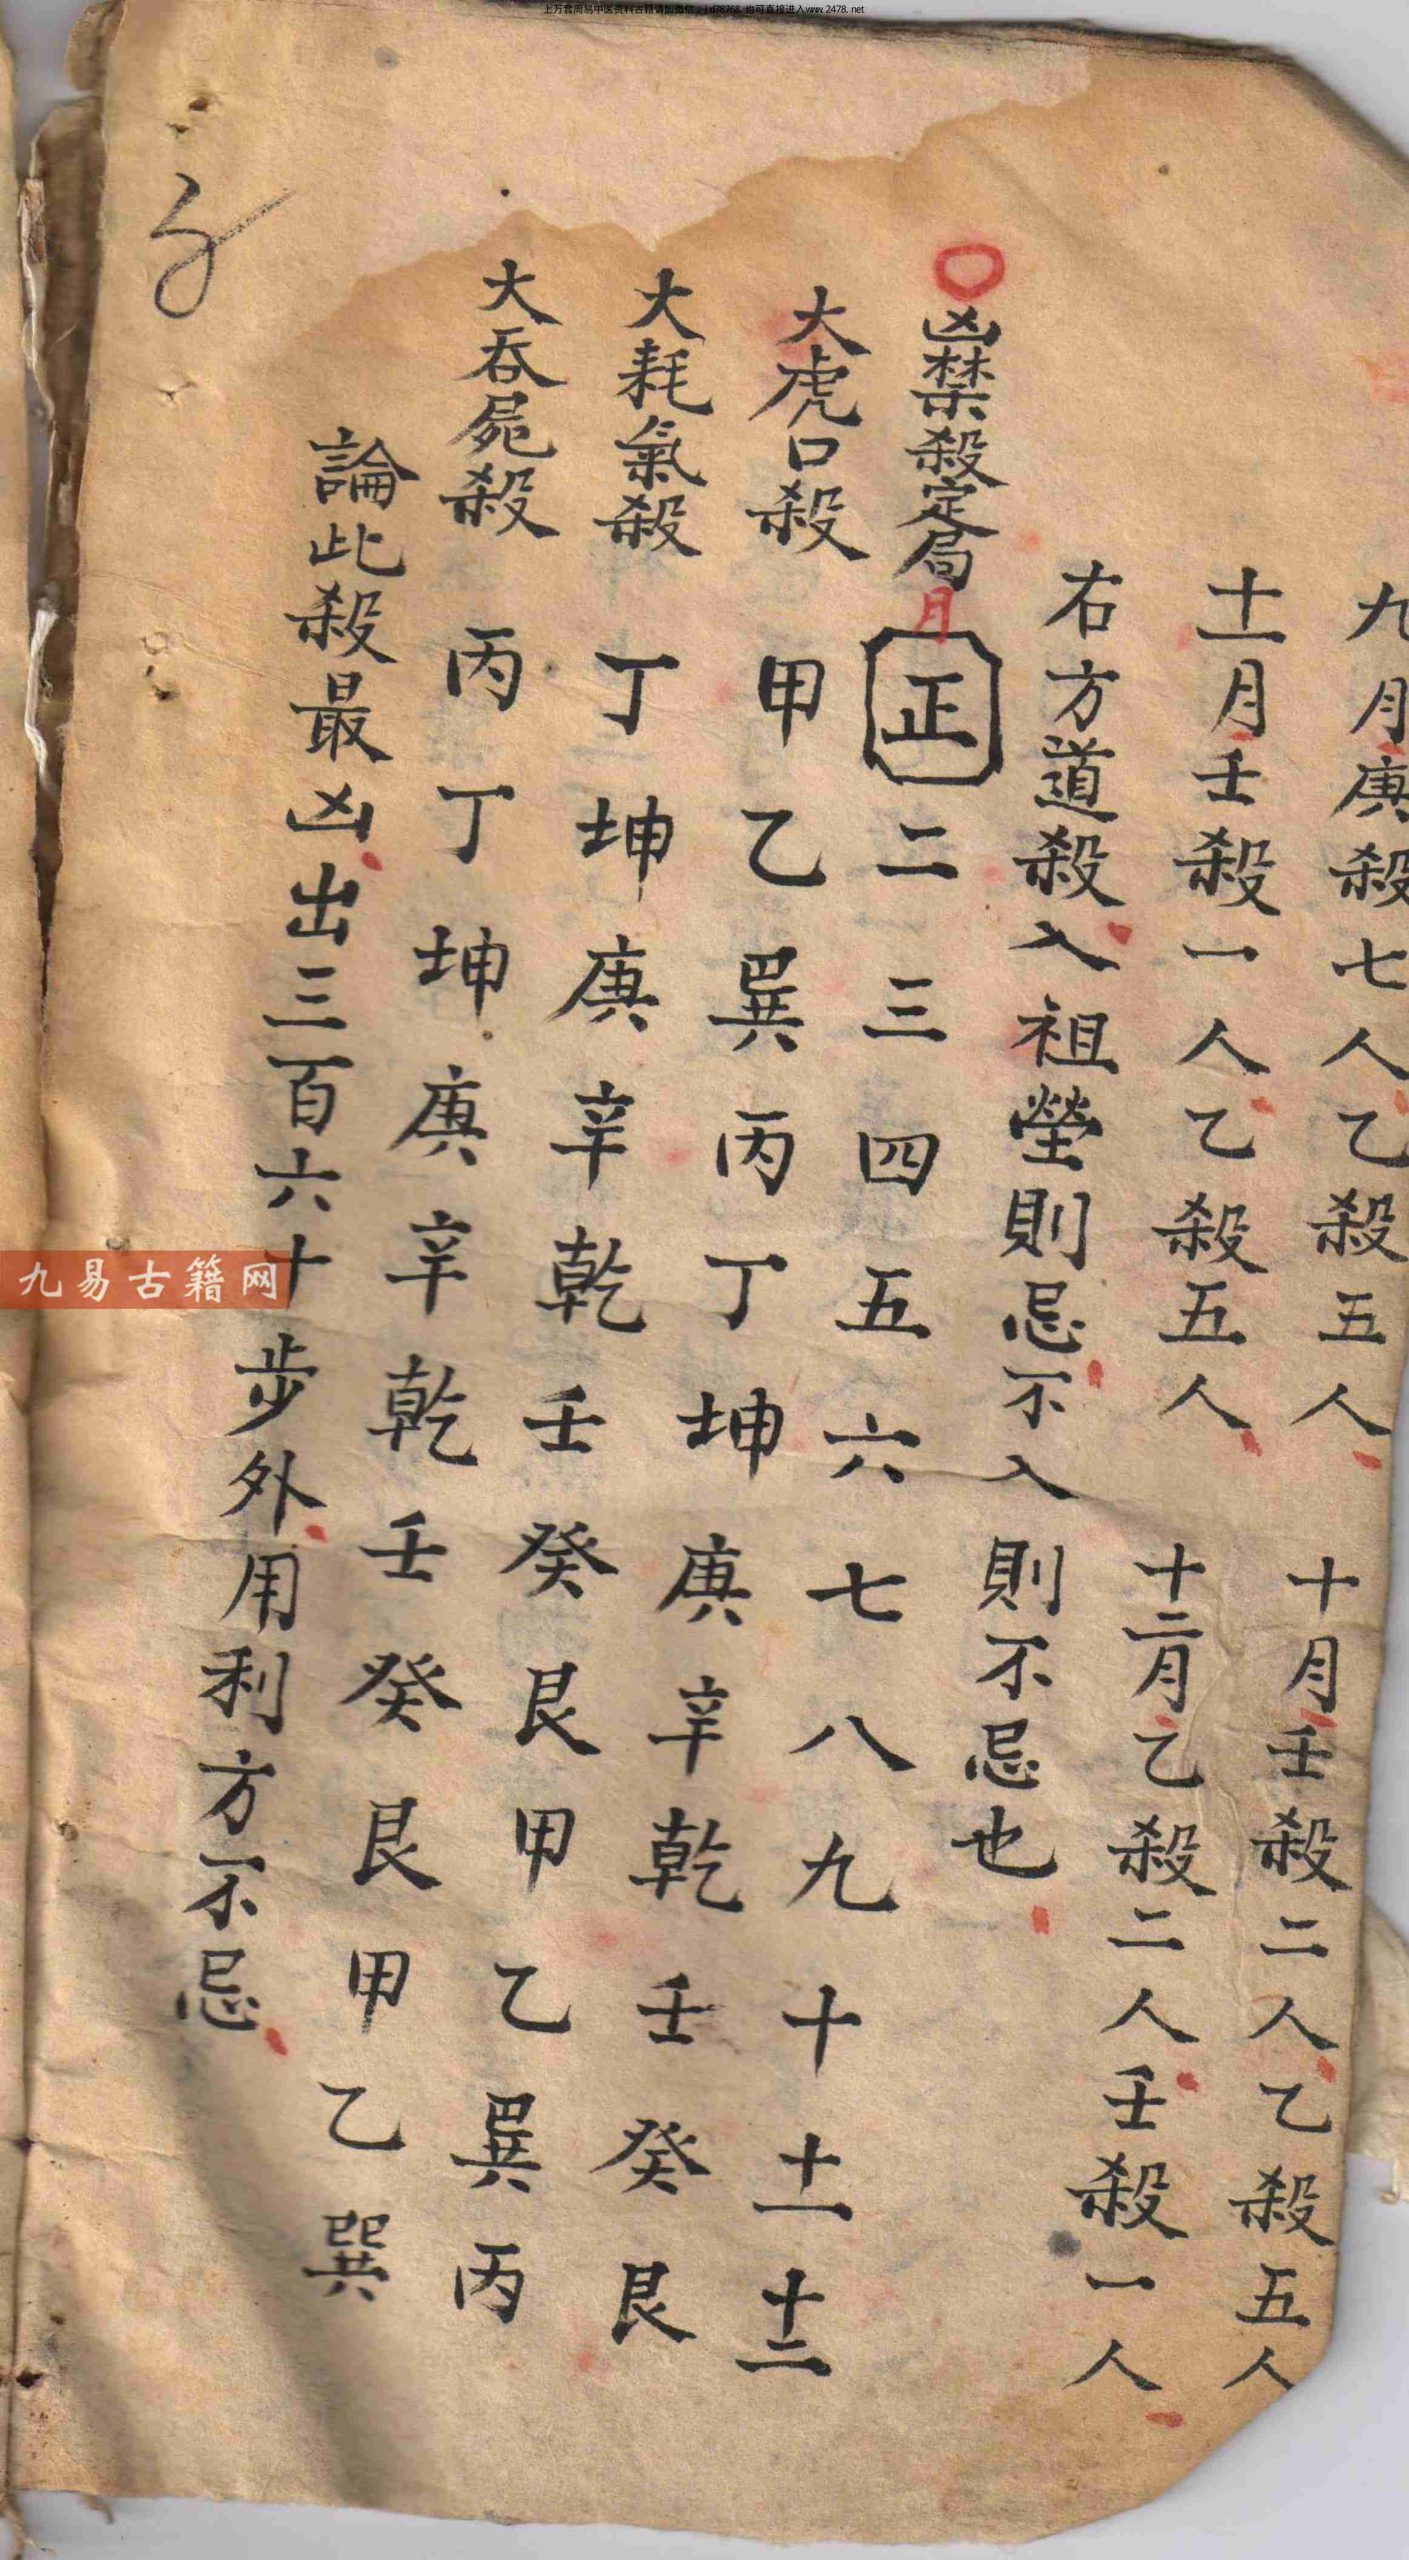 上万套周易中医资料古籍请加微信：jd78768 也可直接进入www.2478.net
九月庚殺七人乙殺五人　十月壬殺二人乙殺五人
十一月壬殺一人乙殺五人　十二月乙殺二人壬殺一人
右方道殺入祖塋則忌不入則不忌也
凶禁殺定局月正二三四五六七八九十十一十二
大虎口殺　甲乙巽丙丁坤庚辛乾壬癸艮
大耗氣殺　丁坤庚辛乾壬癸艮甲乙巽丙
大吞屍殺　丙丁坤庚辛乾壬癸艮甲乙巽
論此殺最凶出三百六十步外用利方不忌
九易古籍网